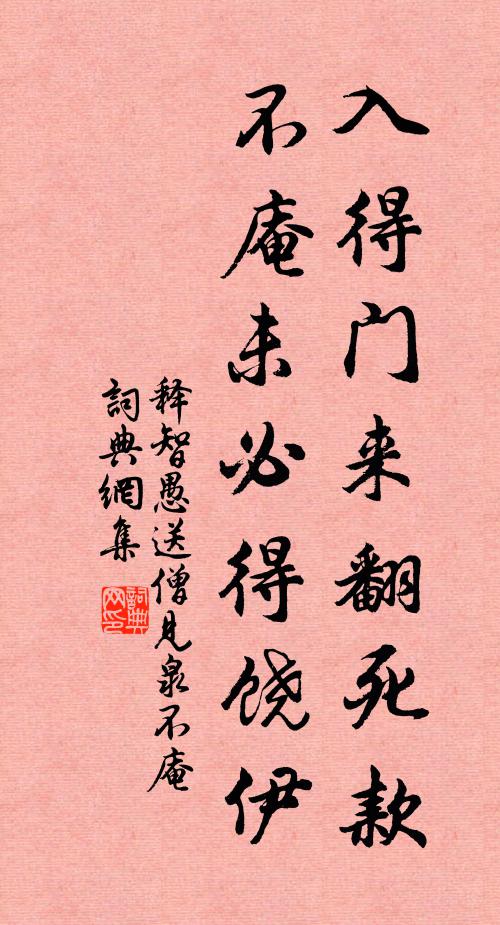 入得门来翻死款
不庵未必得饶伊
释智愚送僧见泉不庵
詞典網集
詞典网印